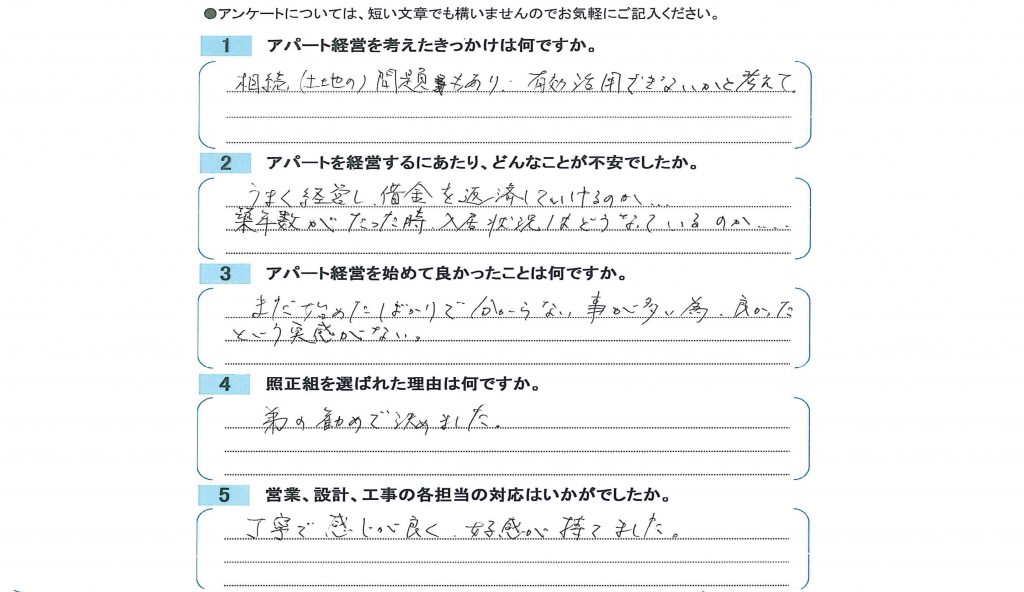 ●アンケートについては、短い文章でも構いませんのでお気軽にご記入ください。
1 アパート経営を考えたきっかけは何ですか。
相続(土地の)問題もあり、有効活用できないかと考えて
2 アパートを経営するにあたり、どんなことが不安でしたか。
うまく経営し、借金を返済していけるのか....
築年数がたった時、入居状況はどうなっているのか.....
3 アパート経営を始めて良かったことは何ですか。
まだ始めたばかりで分からない事が多い為、良かった
という実感がない。
4 照正組を選ばれた理由は何ですか。
弟の勧めで決めました。
5 営業、設計、工事の各担当の対応はいかがでしたか。
丁寧で感じが良く、好感が持てました。